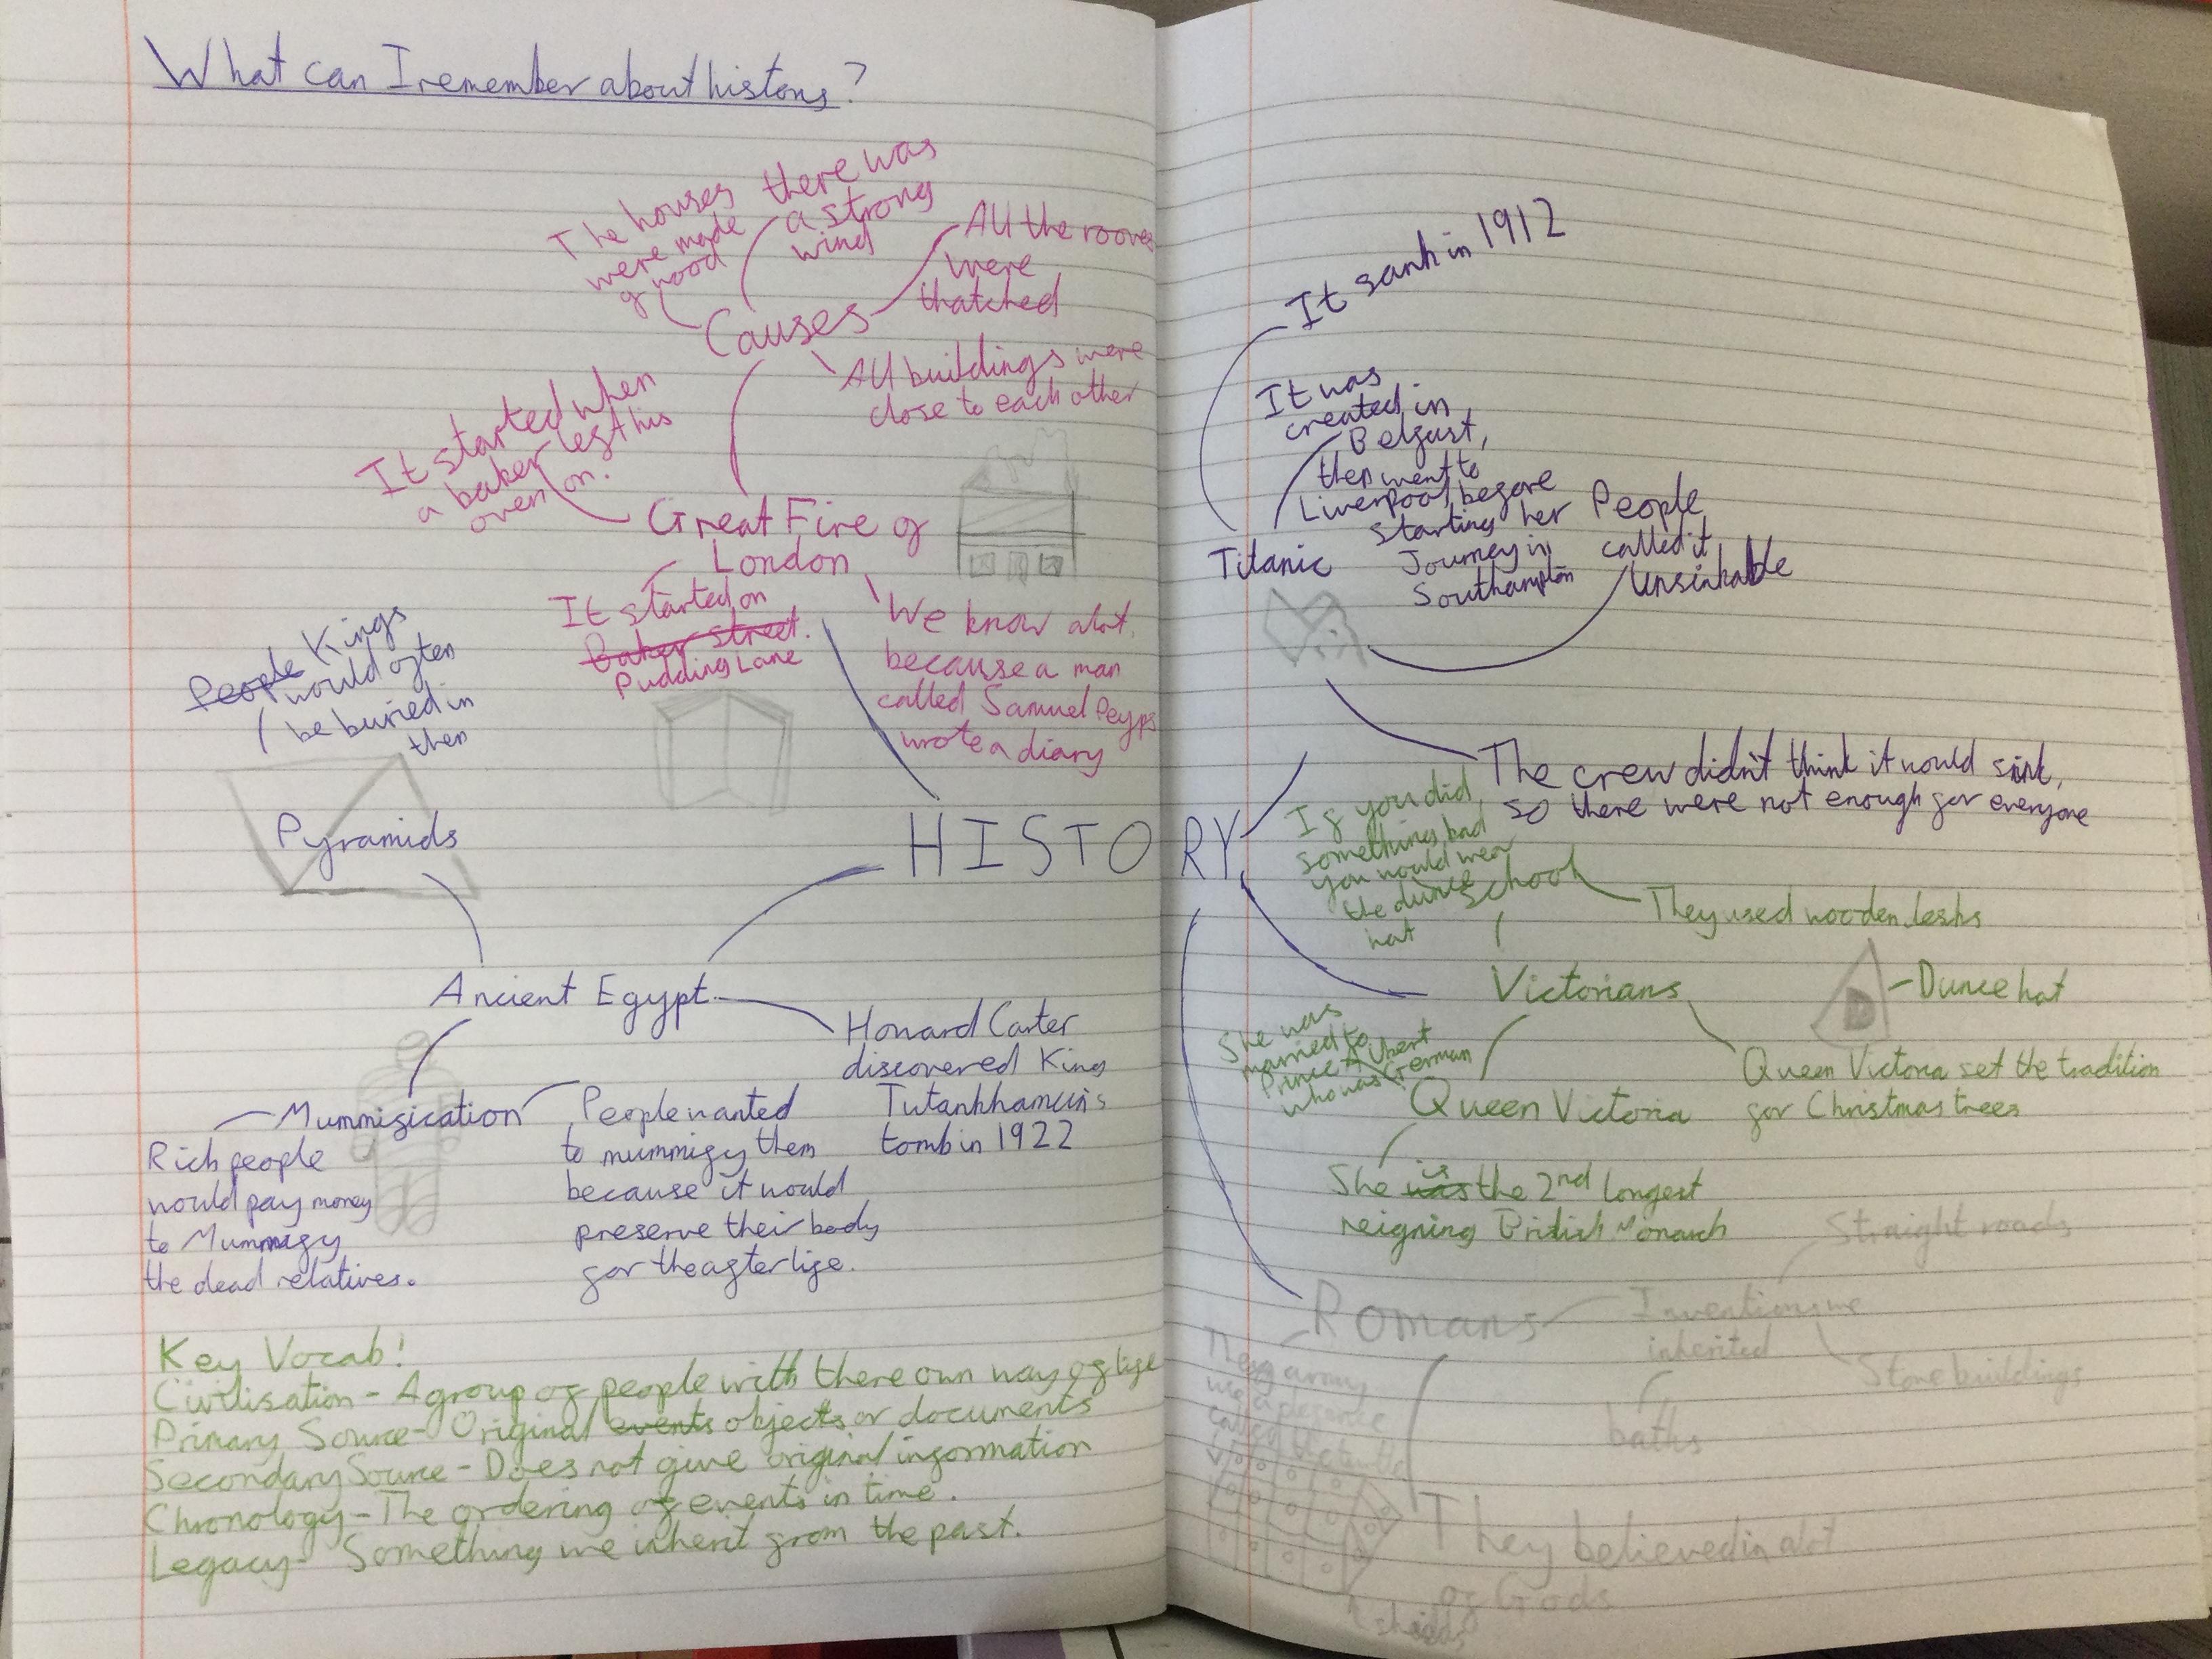 What can I remember about history?
The houses
were made
of wood
there was
a strong
wind
All the rooves
were
thatched
Causes
All buildings were
close to each other
It started when
a baker left his
oven on.
Great Fire of
London
It started on
Baker street.
Pudding Lane
We know alot
because a man
called Samuel Peyps
wrote a diary
People Kings
would often
be buried in
then
Pyramids
HISTORY
Ancient Egypt
Howard Carter
discovered King
Tutankhamun's
tomb in 1922
Mummification
Rich people
would pay money
to Mummify
the dead relatives.
People wanted
to mummify them
because it would
preserve their body
for the afterlife.
Key Vocab!
Civilisation - A group of people with there own way of life
Primary Source - Original events objects or documents
Secondary Source - Does not give original information
Chronology - The ordering of events in time.
Legacy - Something we inherit from the past.
It sank in 1912
It was
created in
Belfast,
then went to
Liverpool, before
starting her
Journey in
Southampton
People
called it
Unsinkable
Titanic
The crew didn't think it would sink,
so there were not enough for everyone
If you did
something bad
you would wear
the dunce
hat
School
They used wooden desks
Victorians
Dunce hat
D
She was
married to
Prince Albert
who was German
Queen Victoria set the tradition
for Christmas trees
Queen Victoria
She was is the 2nd longest
reigning British Monarch
Straight roads
Romans
Inventions we
inherited
Stone buildings
baths
army
called the
They believed in alot
of Gods
shields